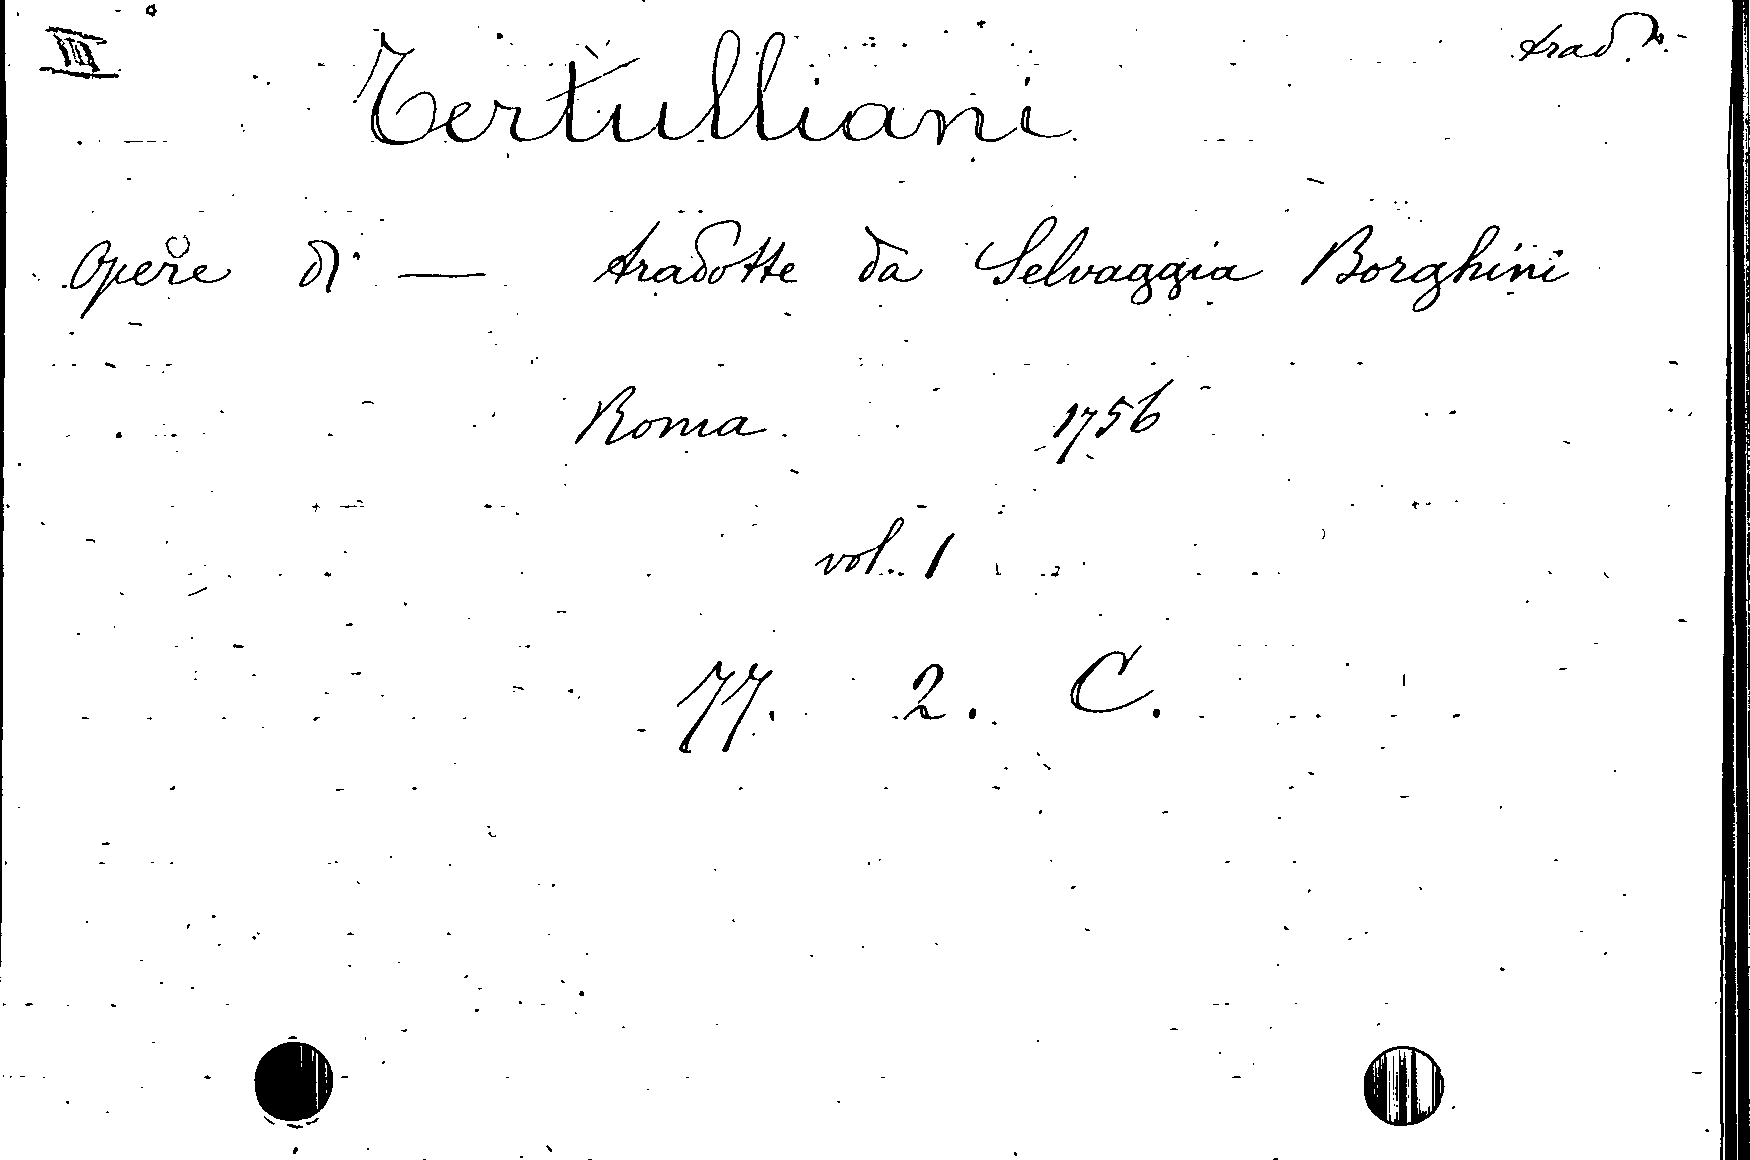 III
trad. re
Tertulliani
Opere di — tradotte da Selvaggia Borghini
Roma 1756
vol. 1
77. 2. C.